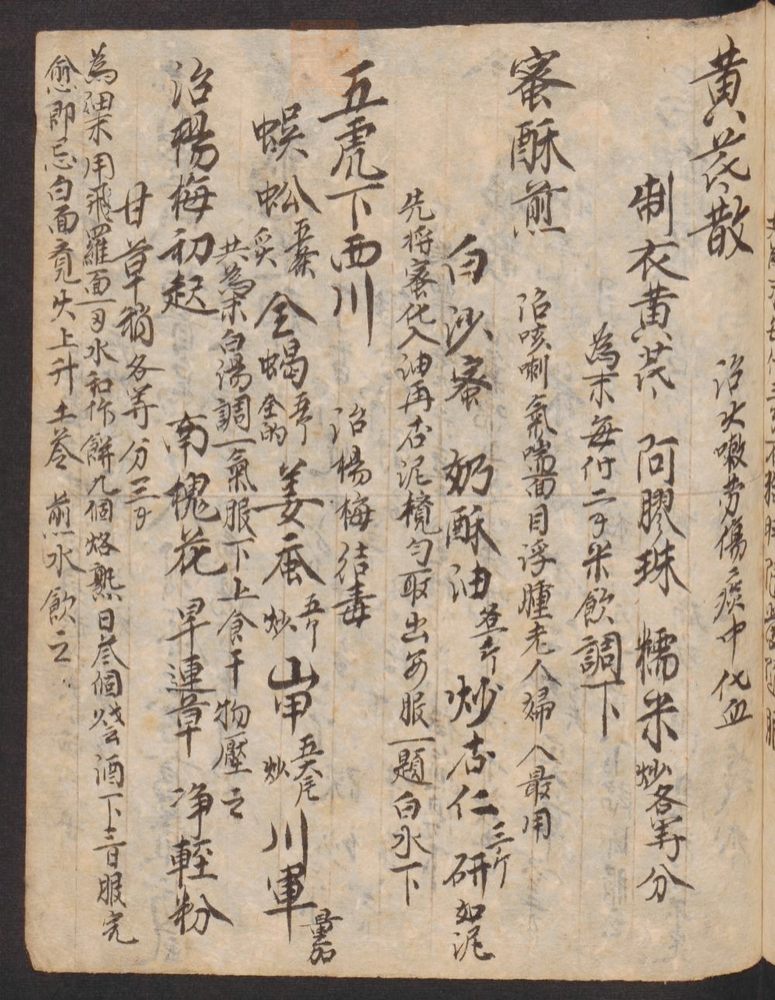 黄芪散
治火嗽劳傷痰中代血
制衣黄芪 阿膠珠 糯米炒各等分
為末每付二 米飲調下
蜜酥煎
治咳喇氣喘面目浮腫老人婦人最用
白沙蜜 奶酥油 炒杏仁三斤研如泥
先将蜜化入油再杏泥攪匀取出每服一題白水下
五虎下西川
治楊梅结毒
蜈蚣五条炙 全蝎全的 姜蚕炒 山甲五大片炒 川軍量加
共為末白湯調一氣服下上食干物壓之
治楊梅初起 南槐花 旱連草 净輕粉
甘草稍各等分三
為細末用飛羅面一 水和作餅九個烙熟日叁個燒酒下三日服完
愈即忌白面竟火上升土苓煎水飲之